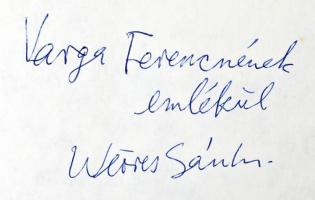 Varga Ferencnének
emlékül
Weöres Sándor.